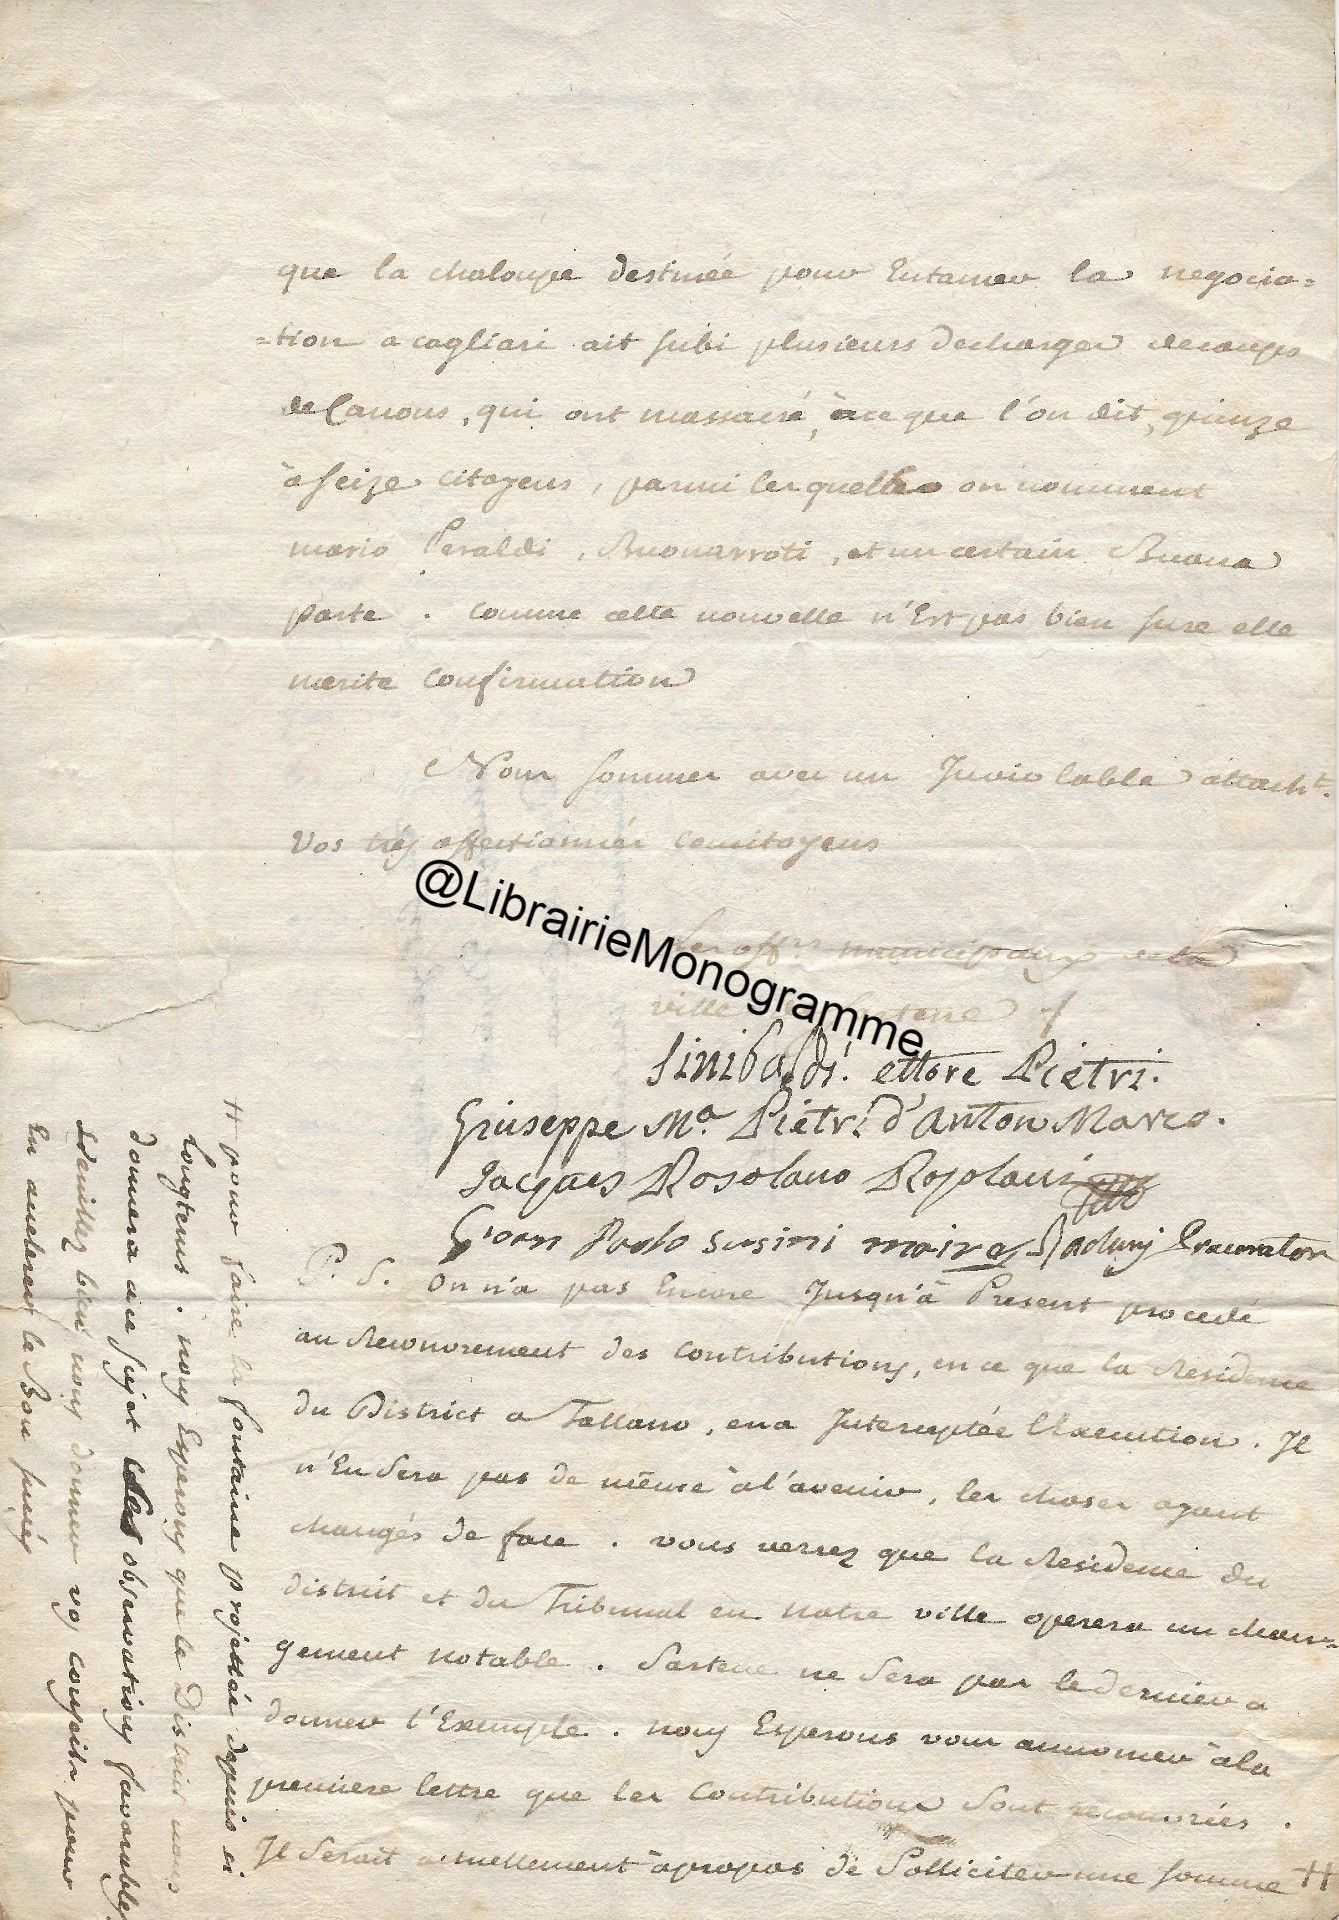 que la chaloupe destinée pour Entamer la negocia=
=tion a cagliari ait subi plusieurs decharges de coups
de Canons, qui ont massacré, à ce que l'on dit, quinze
à seize citoyens, parmi lesquelles on nomment
mario Peraldi, Buonarroti, et un certain Buona
parte. Comme cette nouvelle n'Est pas bien sure elle
merite confirmation
Nous sommes avec un Inviolable attacht.
Vos tres affectionnés concitoyens
@LibrairieMonogramme
Les offrs municipaux de la
ville
Sinibaldi. ettore Pietri.
Giuseppe Ma. Pietri d'Anton Marco.
Jacques Rosolano Rosolani
Gioan Paolo Susini maire
P. S. On n'a pas Encore Jusqu'à Present procedé
au Recouvrement des contributions, en ce que la Residence
du District a Tallano, en a Interceptée l'Execution. Il
n'En Sera pas de même à l'avenir, les choses ayant
changés de face. vous verrez que la Residence du
district et du Tribunal en notre ville operera un chan=
gement notable. Sartene ne Sera pas le dernier a
donner l'Exemple. nous Esperons vous annoncer à la
premiere lettre que les Contributions Sont recouvrées.
Il Serait actuellement à propos de Solliciter une somme #
# pour faire la fontaine projettée depuis si
Longtems. nous Esperons que le District nous
donnera au sujet des observations favorables,
Veuillez bien nous donner vos conseils pour
En amener le Bon succès